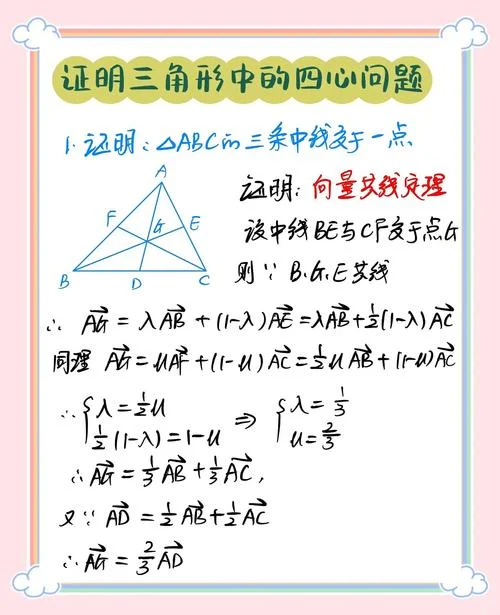 证明三角形中的四心问题
1. 证明:△ABC的三条中线交于一点
A
F
G
E
B
D
C
证明: 向量共线定理
设中线BE与CF交于点G
则∵ B、G、E共线
∴ AG⃗ = λAB⃗ + (1-λ)AE⃗ = λAB⃗ + ½(1-λ)AC⃗
同理 AG⃗ = uAF⃗ + (1-u)AC⃗ = ½uAB⃗ + (1-u)AC⃗
∴ { λ = ½u ⇒ { λ = 1/3
½(1-λ) = 1-u u = 2/3
∴ AG⃗ = 1/3 AB⃗ + 1/3 AC⃗ ,
又∵ AD⃗ = ½AB⃗ + ½AC⃗
∴ AG⃗ = 2/3 AD⃗